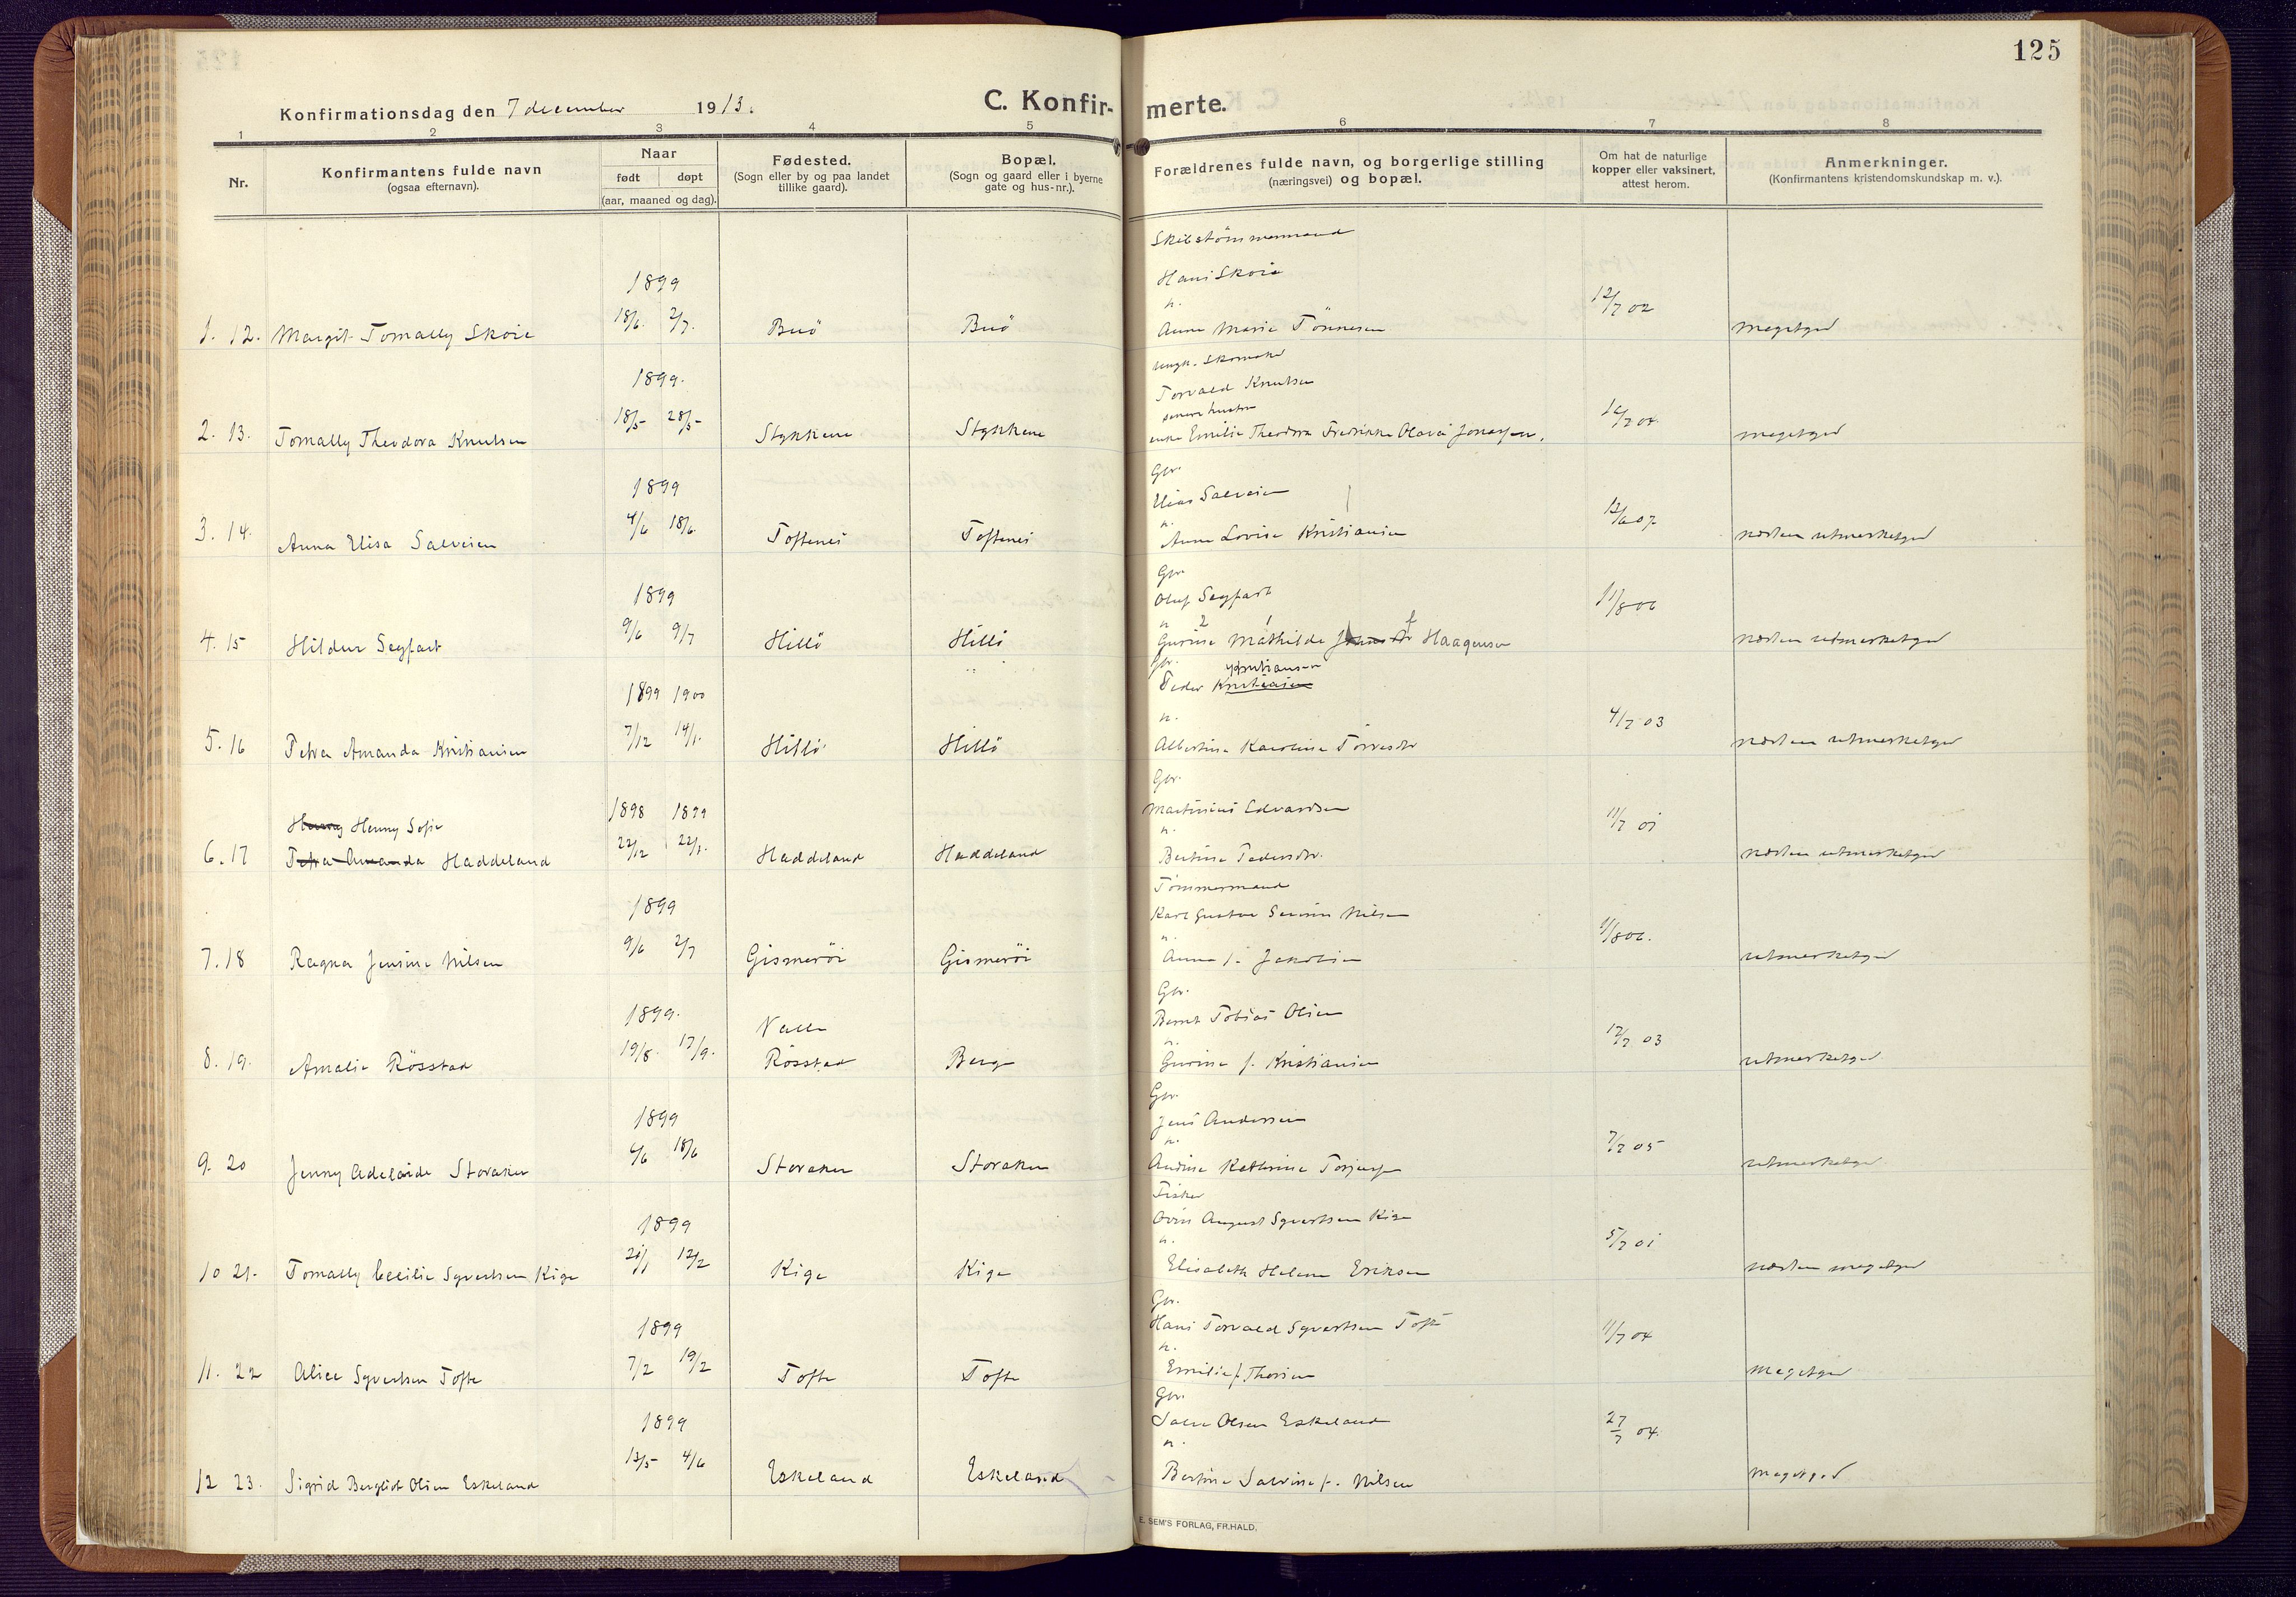 125
Konfirmationsdag den 7 december 1913.
C. Konfir-
merte.
1 2 3 4 5 6 7 8
Nr.
Konfirmantens fulde navn
(ogsaa efternavn).
Naar
født døpt
(aar, maaned og dag).
Fødested.
(Sogn eller by og paa landet
tillike gaard).
Bopæl.
(Sogn og gaard eller i byerne
gate og hus-nr.).
Forældrenes fulde navn, og borgerlige stilling
(næringsvei) og bopæl.
Om hat de naturlige
kopper eller vaksinert,
attest herom.
Anmerkninger.
(Konfirmantens kristendomskundskap m. v.).
Skibstömmermand
Hans Skoie
1899
u.
12/7 02
1. 12. Margit Tomally Skoie 18/6. 2/7. Buö Buö Anna Maria Tönnesen megetgod
ungk. Skomaker
1899.
Torvald Knutsen
senere hustru
2. 13. Tomally Theodora Knutsen 18/5 28/5 Stykkene Stykkene enke Emilie Theodora Fredrikke Olava Jonassen. megetgod
Gbr.
1899
Elias Salvesen
u.
12/6 07
3. 14. Anna Elisa Salvesen 4/6 18/6. Toftenes Toftenes Anna Lovise Kristiansen næsten utmerketgod
Gbr.
1899
Oluf Seyfart
11/8 06
u. 2 1 f
4. 15 Hildur Seyfart 9/6 9/7 Hillö Hillö Gurine Mathilde Haagensen næsten utmerketgod
Gbr. Kristiansen
1899 1900
Peder Kristiansen
u.
4/7 03
5. 16 Petra Amanda Kristiansen 7/12 14/1. Hillö Hillö Albertine Karoline Torresdtr næsten utmerketgod
Gbr.
1898 1899
Martinius Edvardsen
Henny Sofie
u.
11/7 01
6. 17 Petra Amanda Haddeland 22/12 22/1. Haddeland Haddeland Bertine Pedersdtr. næsten utmerketgod
Tömmermand
1899
Karl Gustav Severin Nilsen
u.
11/8 06.
7. 18 Ragna Jensine Nilsen 9/6 2/7 Gismeröi Gismeröi Anna f. Jakobsen utmerketgod
Gbr.
1899.
Valle
Bernt Tobias Olsen
u.
12/7 03
8. 19. Amalie Rösstad 19/8. 17/9. Rösstad Berge Gurine f. Kristiansen utmerketgod
Gbr.
1899
Jens Andersen
u.
7/7 05
9. 20 Jenny Adelaide Storaker 6/6 18/6 Storaker Storaker Andrine Kathrine Torjusen utmerketgod
Fisker
1899
August Syvertsen Kige
u.
5/7 01
10 21. Tomally Cecilie Syvertsen Kige 21/1 12/2 Kige Kige Elisabeth Helene Eriksen næsten megetgod
Gbr.
1899
Hans Torvald Syvertsen Tofte
u.
11/7 04
11. 22 Alice Syvertsen Tofte 7/2 19/2 Tofte Tofte Emilie f. Thorsen megetgod
Gbr.
1899
Salve Olsen Eskeland
u.
27/7 04.
12 23. Sigrid Bergliot Olsen Eskeland 13/5 4/6 Eskeland Eskeland Bertine Salvine f. Nilsen megetgod
E. SEM'S FORLAG, FR.HALD.